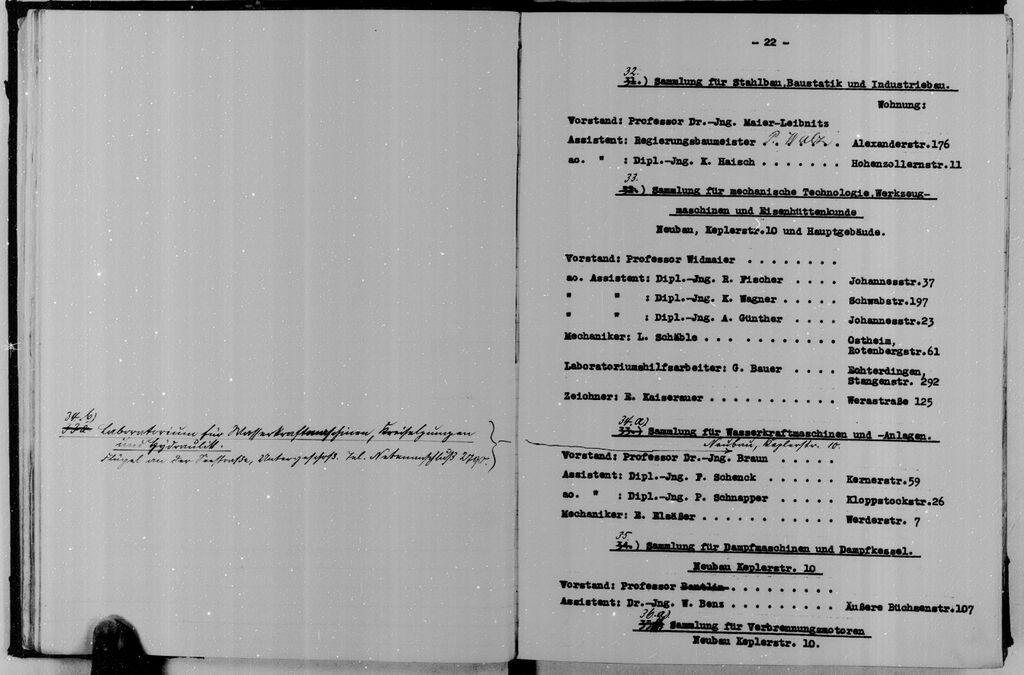 34.b)
33a. Laboratorium für Wasserkraftmaschinen, Kreiselpumpen
und Hydraulik.
Flügel an der Seestraße, Untergeschoß. Tel. Nebenanschluß
- 22 -
32.
31.) Sammlung für Stahlbau,Baustatik und Industriebau.
Wohnung:
Vorstand: Professor Dr.-Jng. Maier-Leibnitz
Assistent: Regierungsbaumeister P. Walz. Alexanderstr.176
ao. " : Dipl.-Jng. K. Haisch . . . . . . . Hohenzollernstr.11
33.
32.) Sammlung für mechanische Technologie,Werkzeug-
maschinen und Eisenhüttenkunde
Neubau, Keplerstr.10 und Hauptgebäude.
Vorstand: Professor Widmaier . . . . . . . .
ao. Assistent: Dipl.-Jng. R. Fischer . . . . Johannesstr.37
" " : Dipl.-Jng. K. Wagner . . . . . Schwabstr.197
" " : Dipl.-Jng. A. Günther . . . . Johannesstr.23
Mechaniker: L. Schäble . . . . . . . . . . . . Ostheim,
Rotenbergstr.61
Laboratoriumshilfsarbeiter: G. Bauer . . . . Echterdingen,
Stangenstr. 292
Zeichner: E. Kaiserauer . . . . . . . . . . . Werastraße 125
34.a)
33.) Sammlung für Wasserkraftmaschinen und -Anlagen.
Neubau, Keplerstr. 10.
Vorstand: Professor Dr.-Jng. Braun . . . . .
Assistent: Dipl.-Jng. F. Schenck . . . . . . Kernerstr.59
ao. " : Dipl.-Jng. P. Schnapper . . . . Kloppstockstr.26
Mechaniker: E. Elsäßer . . . . . . . . . . . . Werderstr. 7
35.
34.) Sammlung für Dampfmaschinen und Dampfkessel.
Neubau Keplerstr. 10
Vorstand: Professor Bantlin . . . . . . . . .
Assistent: Dr.-Jng. W. Benz . . . . . . . . . Äußere Büchsenstr.107
36.a)
Sammlung für Verbrennungsmotoren
Neubau Keplerstr. 10.